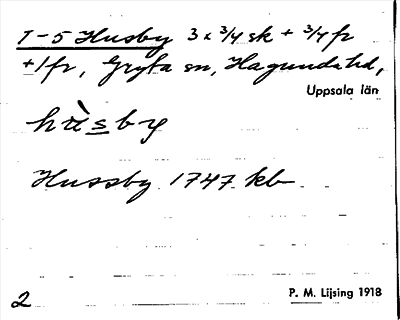 1-5 Husby 3 x 3/4 sk + 3/4 fr
+1 fr, Gryta sn, Hagunda hd,
Uppsala län
hùsby
Hussby 1747 kb
2
P. M. Lijsing 1918